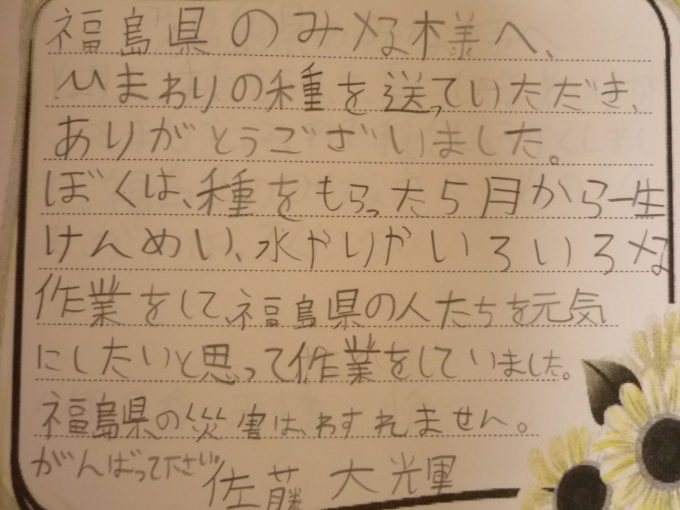 福島県のみな様へ、
ひまわりの種を送っていただき、
ありがとうございました。
ぼくは、種をもらった5月から一生
けんめい、水やりやいろいろな
作業をして、福島県の人たちを元気
にしたいと思って作業をしていました。
福島県の災害は、わすれません。
がんばってださい。佐藤 大輝